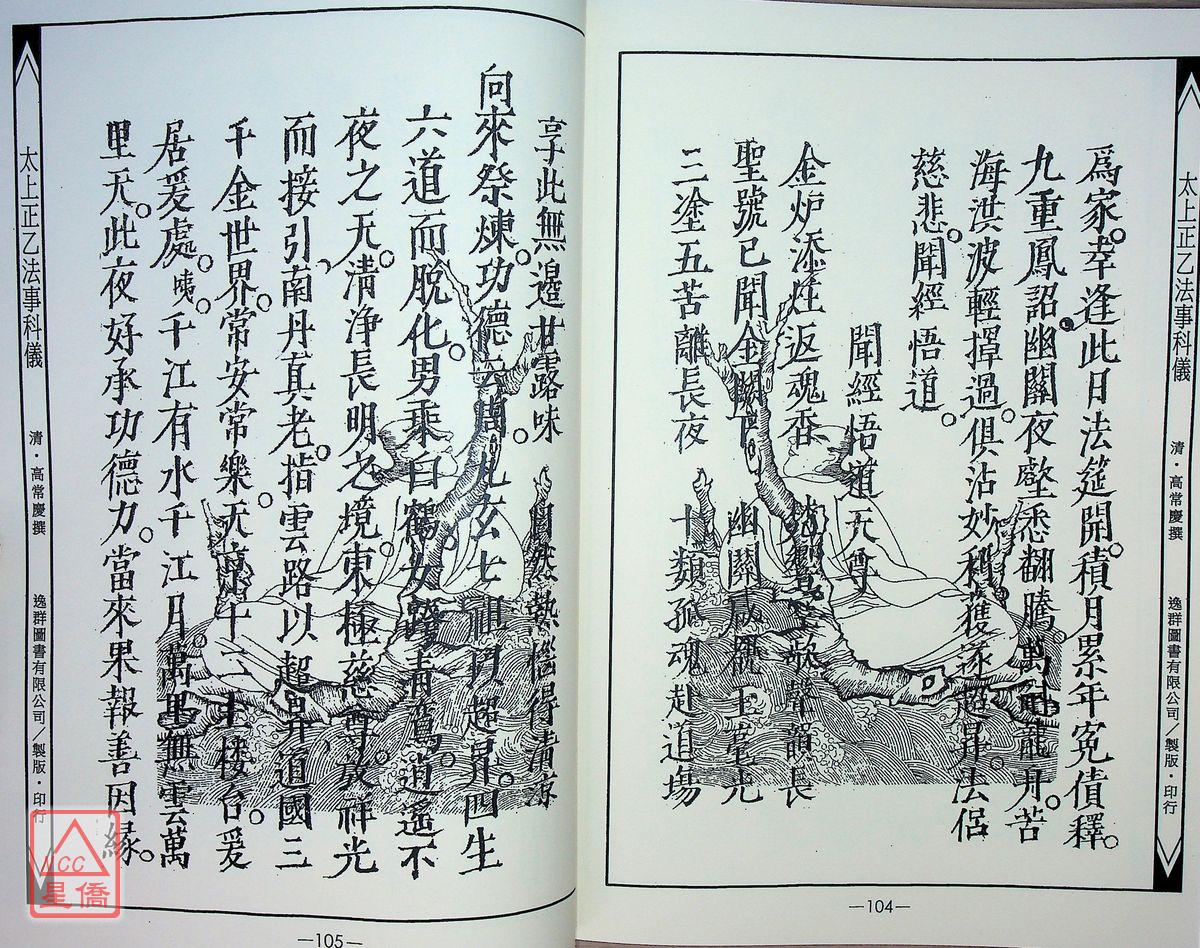 太上正乙法事科儀
清・高常慶撰
逸群圖書有限公司／製版・印行
為家。幸逢此日法筵開。積月累年冤債釋。
九重鳳詔幽關夜壑悉翻騰。萬龍舟。苦
海洪波輕掉過。俱沾妙利獲逐超昇。法侶
慈悲。聞經悟道。
聞經悟道天尊
金炉添炷返魂香 聲韻長
聖號已聞金闕下 幽關咸 光
三塗五苦離長夜 十類孤魂赴道場
—104—
享此無邊甘露味 自然熱惱得清凉
向來祭煉。功德 周九玄七祖 超昇。四生
六道而脫化。男乘白鶴。女跨青鸞。逍遙不
夜之天。清净長明之境。東極慈尊。放祥光
而接引。南丹真老。指雲路以超昇。道國三
千金世界。常安常樂。天京十二玉楼台。爰
居爰處。咦。千江有水千江月。萬里無雲萬
里天。此夜好承功德力。當來果報善因緣。
太上正乙法事科儀
清・高常慶撰
逸群圖書有限公司／製版・印行
—105—
NCC
星僑